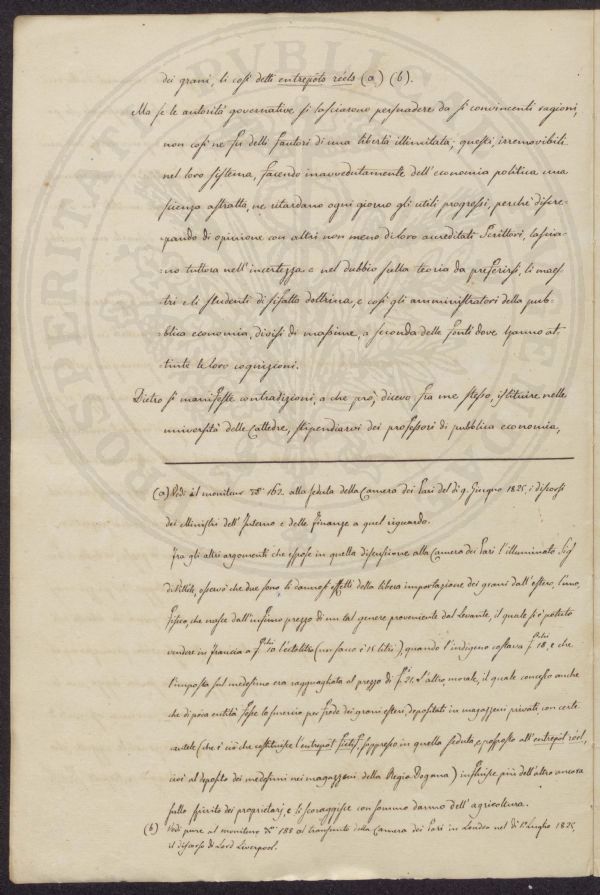 dei grani, li così detti entrepôts réels (a) (b).
Ma se le autorità governative si lasciarono persuadere da sì convincenti ragioni,
non così ne fu delli fautori di una libertà illimitata; questi, irremovibili
nel loro sistema, facendo inavvedutamente dell'economia politica una
scienza astratta, ne ritardano ogni giorno gli utili progressi, perchè discre-
-pando di opinione con altri non meno di loro accreditati Scrittori, lascia-
-no tuttora nell'incertezza e nel dubbio sulla teoria da preferirsi, li maes-
tri e li studenti di sifatta dottrina, e così gli amministratori della pub-
-blica economia, divisi di massime, a seconda delle fonti dove hanno at-
-tinte le loro cognizioni.
Dietro sì manifeste contradizioni, a che prò, dicevo fra me stesso, istituire nelle
università delle Cattedre, stipendiarvi dei professori di pubblica economia,
(a) Vedi al moniteur N.° 162. alla seduta della Camera dei Pari del dì 9. Giugno 1825, i discorsi
dei Ministri dell'Interno e delle Finanze a quel riguardo.
Fra gli altri argomenti che espose in quella discussione alla Camera dei Pari l'illuminato Sig
di Villèle, osservò che due sono li dannosi effetti della libera importazione dei grani dall'estero, l'uno,
fisico, che nasce dall'infimo prezzo di un tal genere proveniente dal Levante, il quale si è potuto
vendere in Francia a f.chi 10 l'ectolitro (un sacco è 15 litri), quando l'indigeno costava f.chi 18, e che
l'imposta sul medesimo era ragguagliata al prezzo di f.i 21. L'altro, morale, il quale concesso anche
che di poca entità fosse lo smercio per frode dei grani esteri, depositati in magazzeni privati, con certe
cautele (che è ciò che costituisce l'entrepôt fictif, soppresso in quella seduta, e posposto all'entrepôt réel,
cioè al deposito dei medesimi nei magazzeni della Regia Dogana) influisce più dell'altro ancora
sullo spirito dei proprietarj, e li scoraggisce con sommo danno dell'agricoltura.
(b) Vedi pure al moniteur N.° 188 al transunto della Camera dei Pari in Londra nel dì 1.° Luglio 1825,
il discorso di Lord Liverpool.
PROSPERITATI PUBLICAE